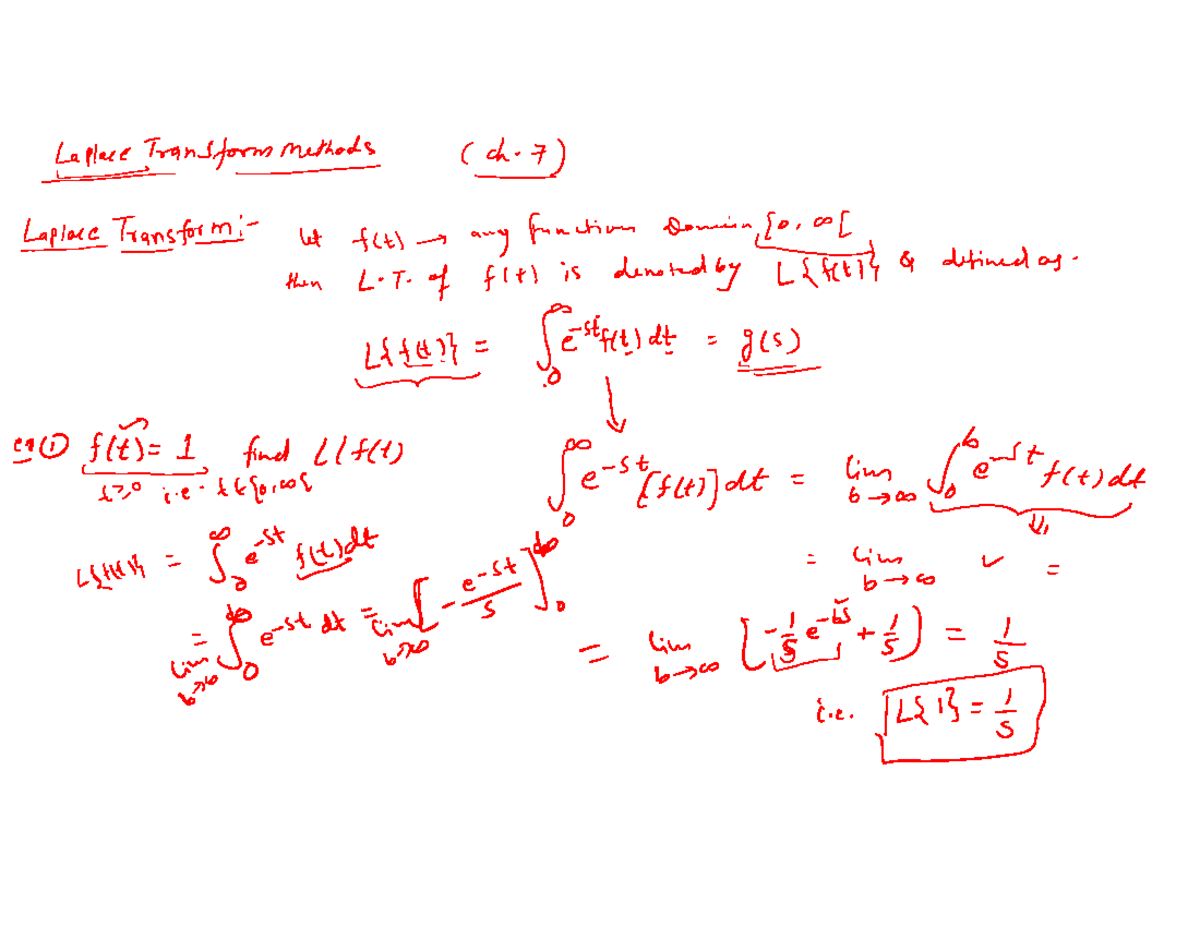 Laplace Transform Methods (ch. 7)
Laplace Transform:- let f(t) → any function Domain [0, ∞[
then L.T. of f(t) is denoted by L{f(t)} & defined as.
L{f(t)} = ∫₀^∞ e^{-st} f(t) dt = g(s)
eg ① f(t) = 1 find L{f(t)
t≥0 i.e. t∈[0,∞[
∫₀^∞ e^{-st} [f(t)] dt = lim b→∞ ∫₀^b e^{-st} f(t) dt
= lim b→∞ ✓ =
L{f(t)} = ∫₀^∞ e^{-st} f(t) dt
= lim b→∞ ∫₀^b e^{-st} dt = lim b→∞ [-e^{-st}/s]₀^b
= lim b→∞ [-1/s e^{-bs} + 1/s) = 1/s
i.e. L{1} = 1/s